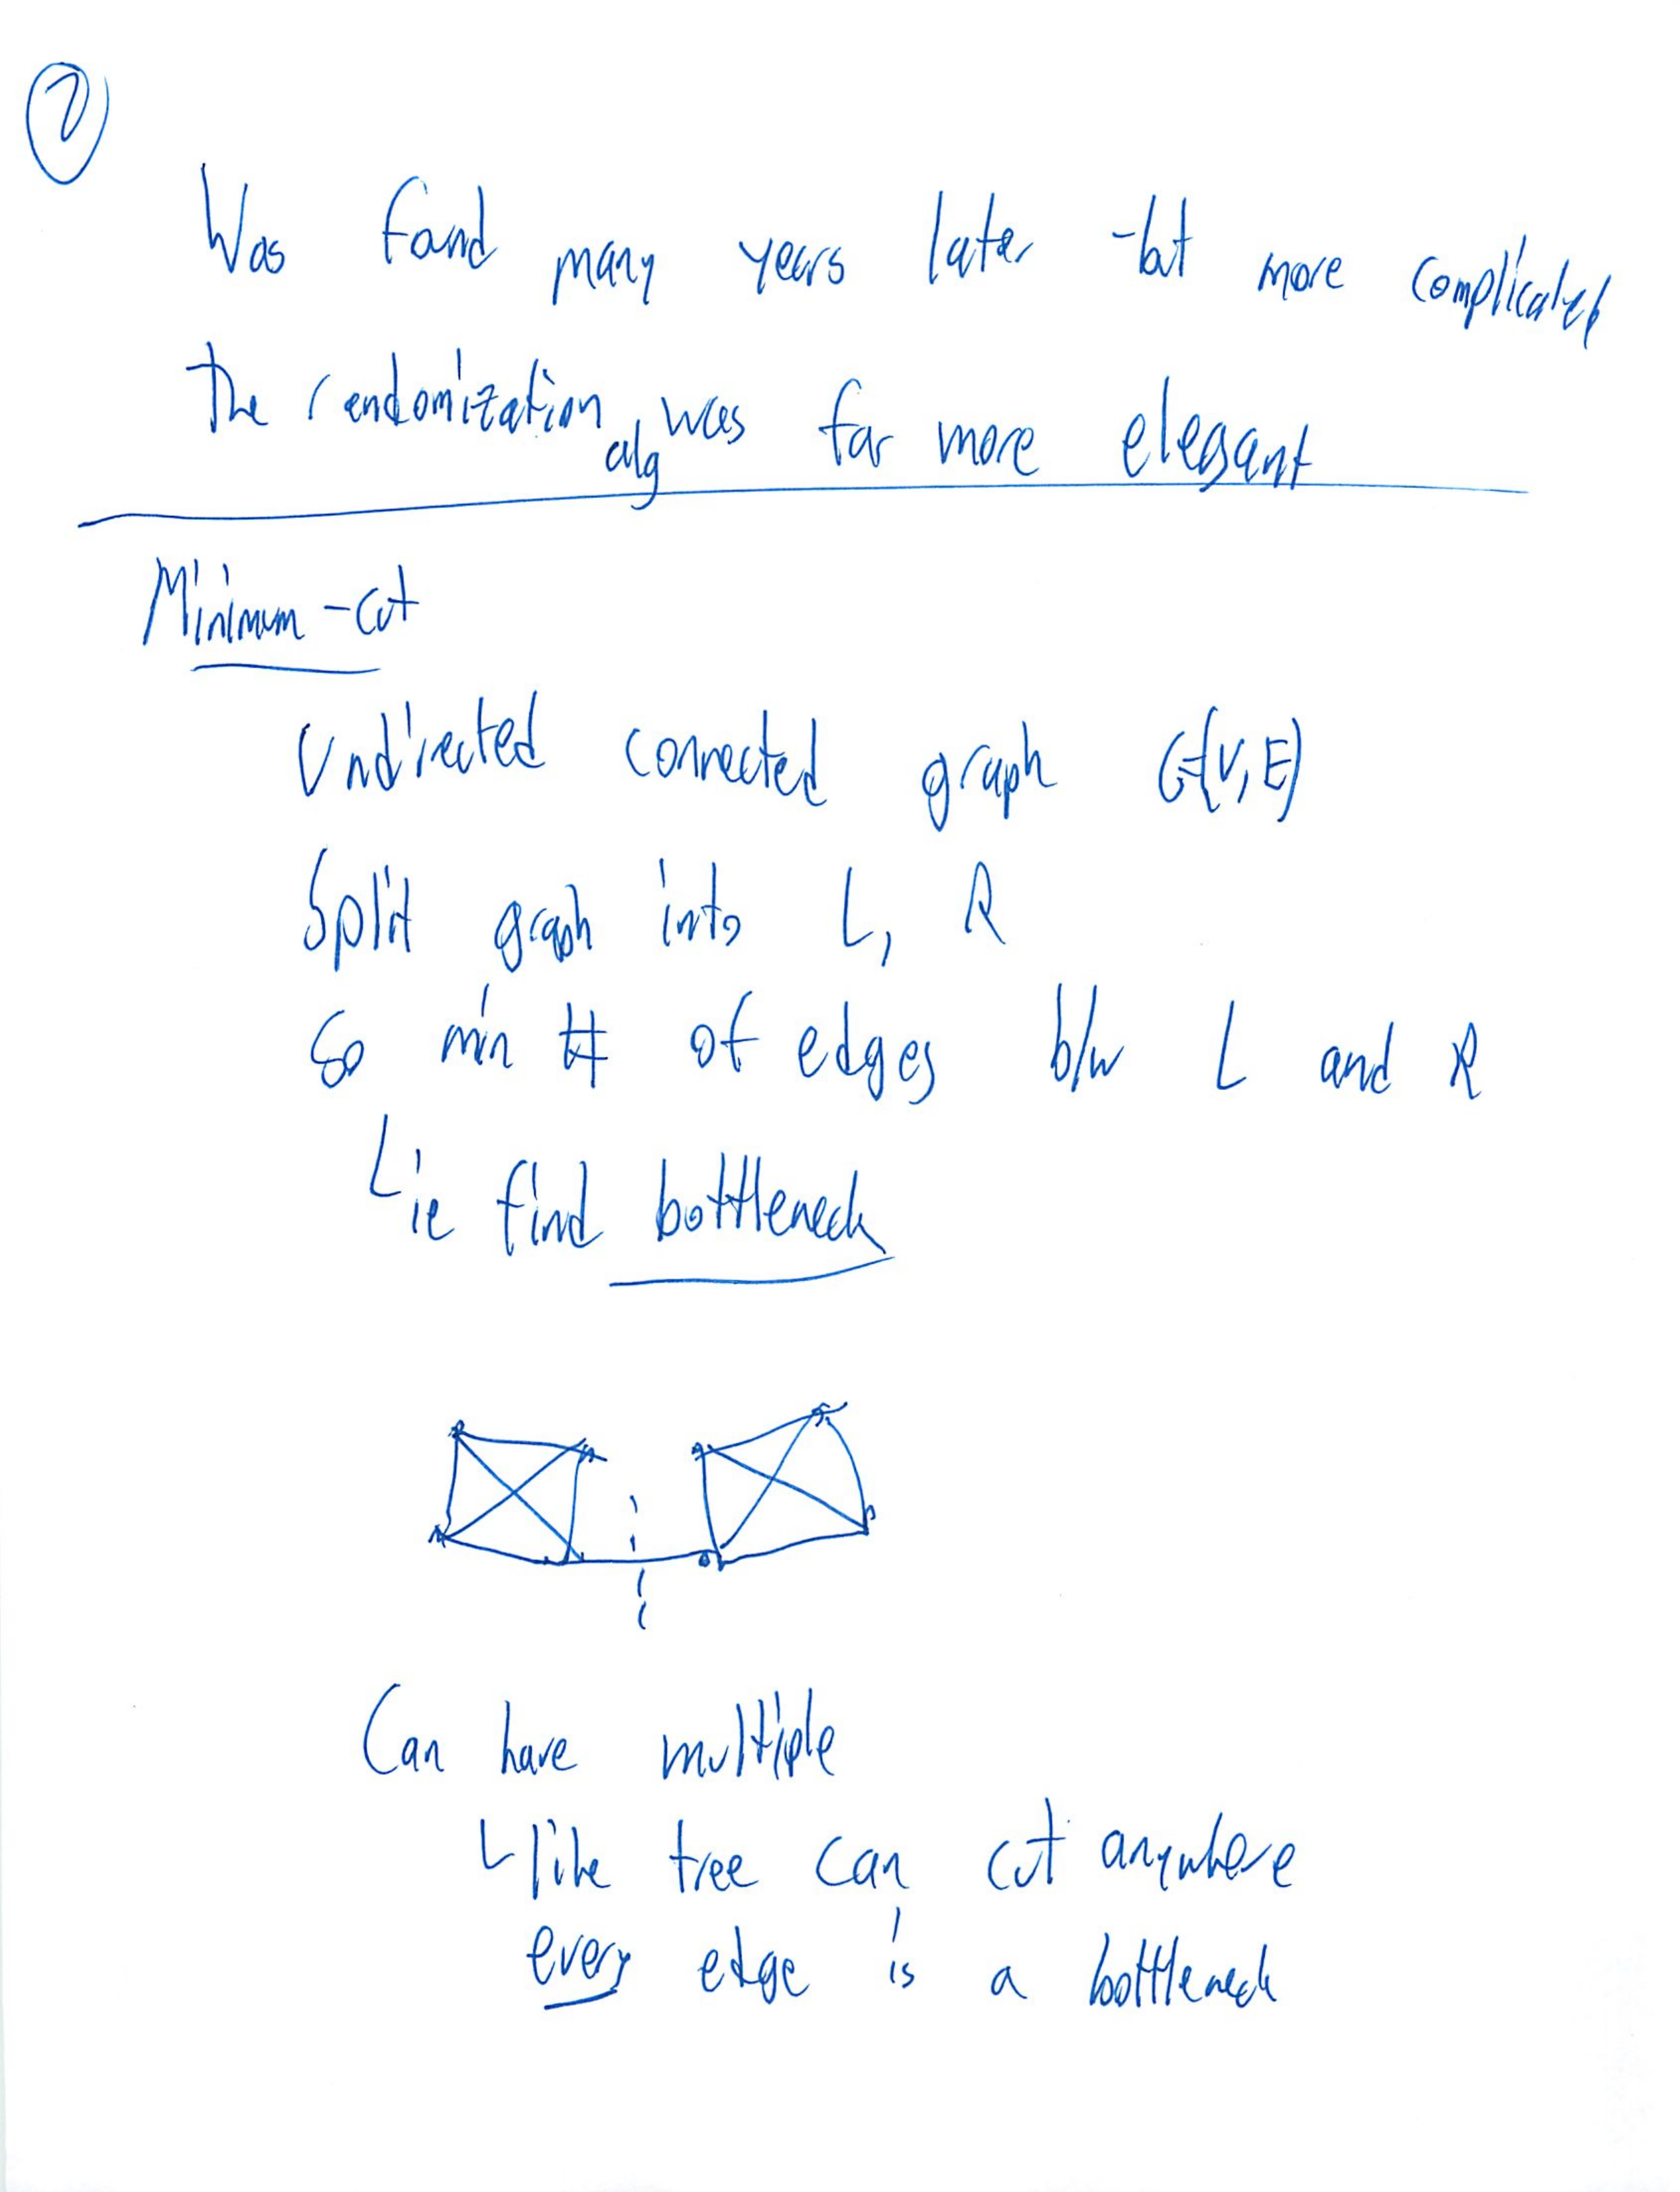 2
Was found many years later - but more complicated
The randomization alg was far more elegant
Minimum - cut
Undirected connected graph G=(V,E)
Split graph into L, R
So min # of edges b/w L and R
ie find bottleneck
Can have multiple
like tree can cut anywhere
every edge is a bottleneck